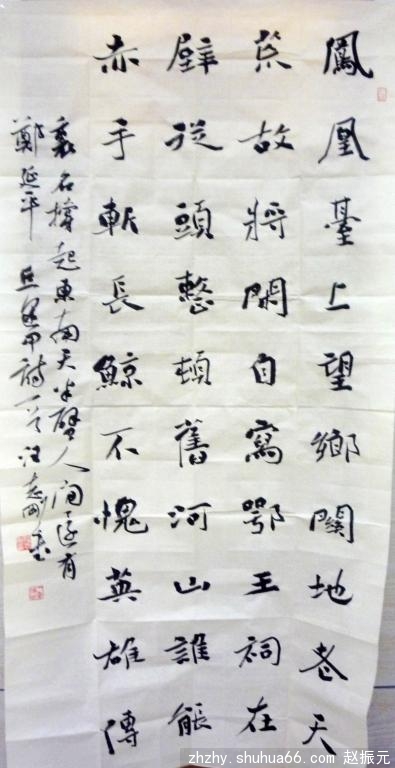 鳳凰臺上望鄉關地老天
荒故將閑自寫鄂王祠在
壁從頭整頓舊河山誰能
赤手斬長鯨不愧英雄傳
名撐起東南天半壁人间還有
鄭延平 丘逢甲詩一首 汪志刚书
zhzhy.shuhua66.com 赵振元